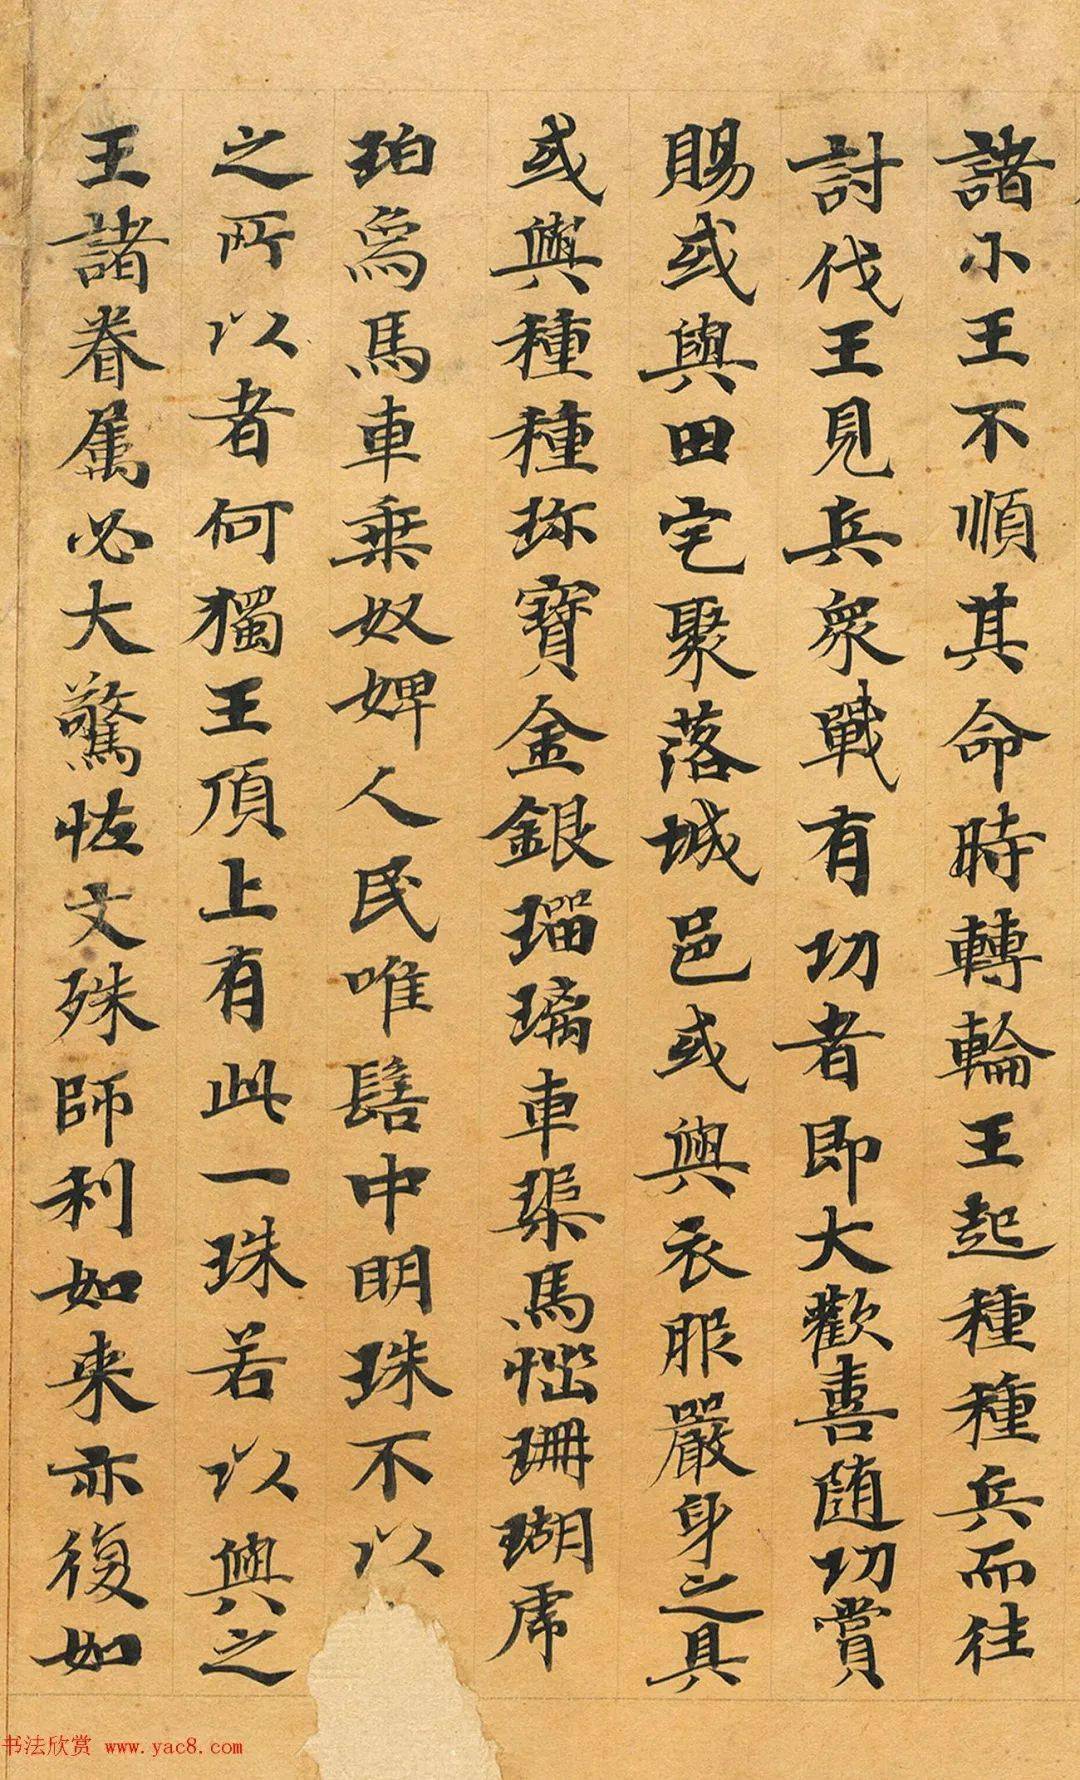 諸小王不順其命時轉輪王起種種兵而往
討伐王見兵衆戰有功者即大歡喜隨功賞
賜或與田宅聚落城邑或與衣服嚴身之具
或與種種珎寶金銀瑠璃車璩馬惱珊瑚虎
珀鳥馬車乗奴婢人民唯髻中明珠不以
之所以者何獨王頂上有此一珠若以與之
王諸眷属必大驚恠文殊師利如来亦復如
书法欣赏 www.yac8.com